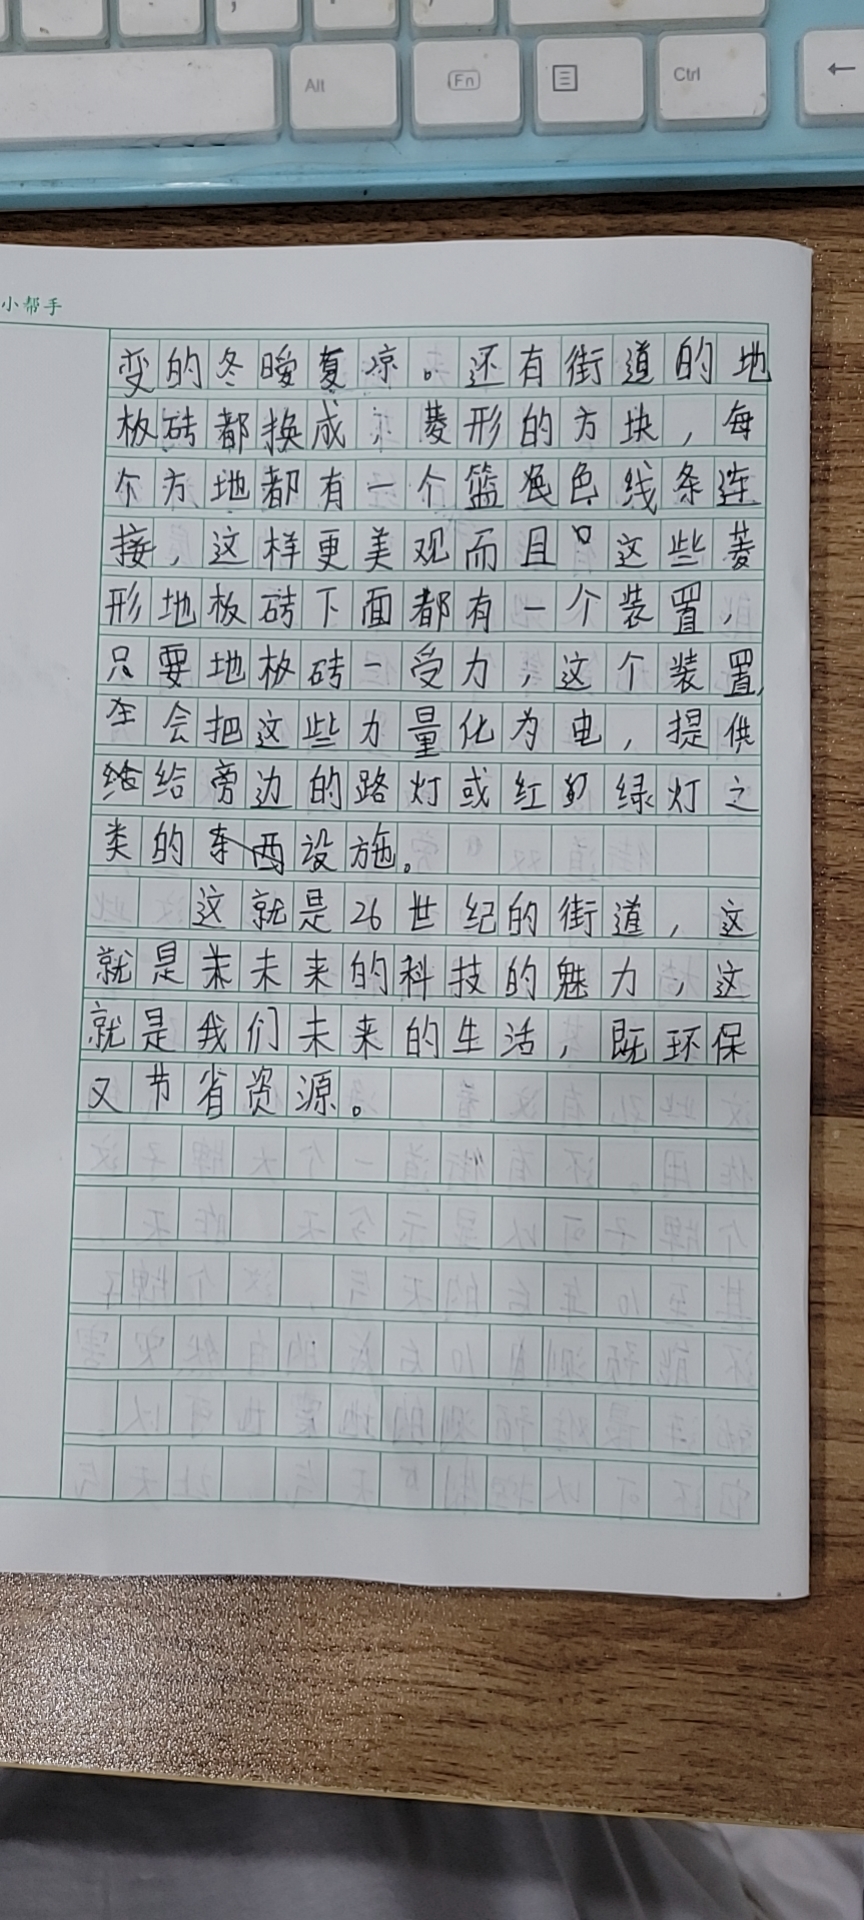 Alt
Fn
Ctrl
←
小帮手
变的冬暖夏凉。还有街道的地
板砖都换成菱形的方块，每
个方地都有一个篮色线条连
接，这样更美观而且这些菱
形地板砖下面都有一个装置，
只要地板砖一受力，这个装置
会把这些力量化为电，提供
给旁边的路灯或红绿灯之
类的东西设施。
这就是26世纪的街道，这
就是未来的科技的魅力，这
就是我们未来的生活，既环保
又节省资源。